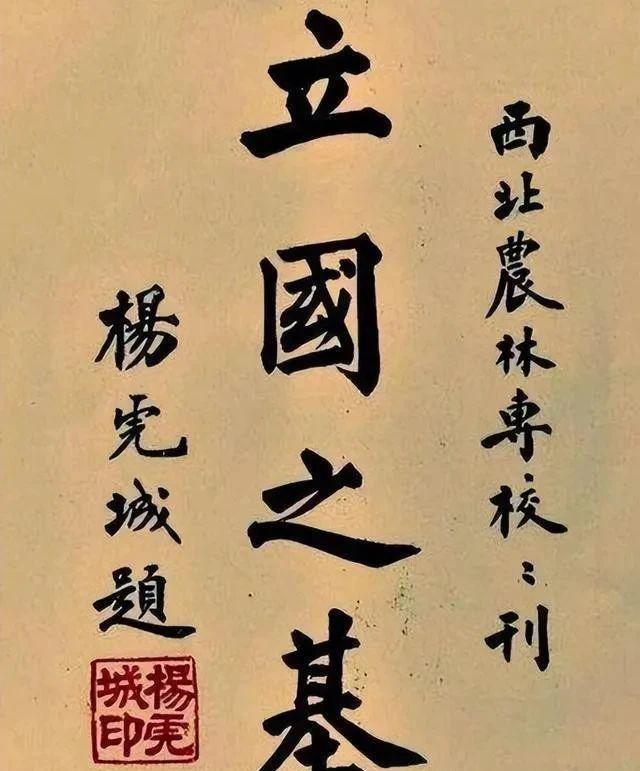 西北農林專校〻刊
立國之基
楊虎城題
楊虎
城印